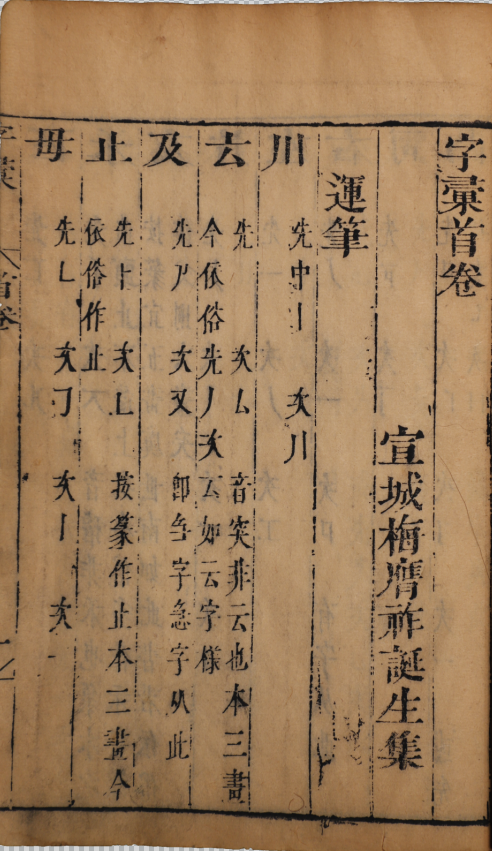 字彙首卷
宣城梅膺祚誕生集
運筆
川 先中丨 次川
𠫓 先 次厶 音突非云也本三畫
今依俗先丿次云如云字樣
及 先𠂆 次又 卽刍字急字从此
止 先⺊ 次乚 按篆作止本三畫今
依俗作止
毋 先乚 次㇆ 次丨 次一
字彙 首卷